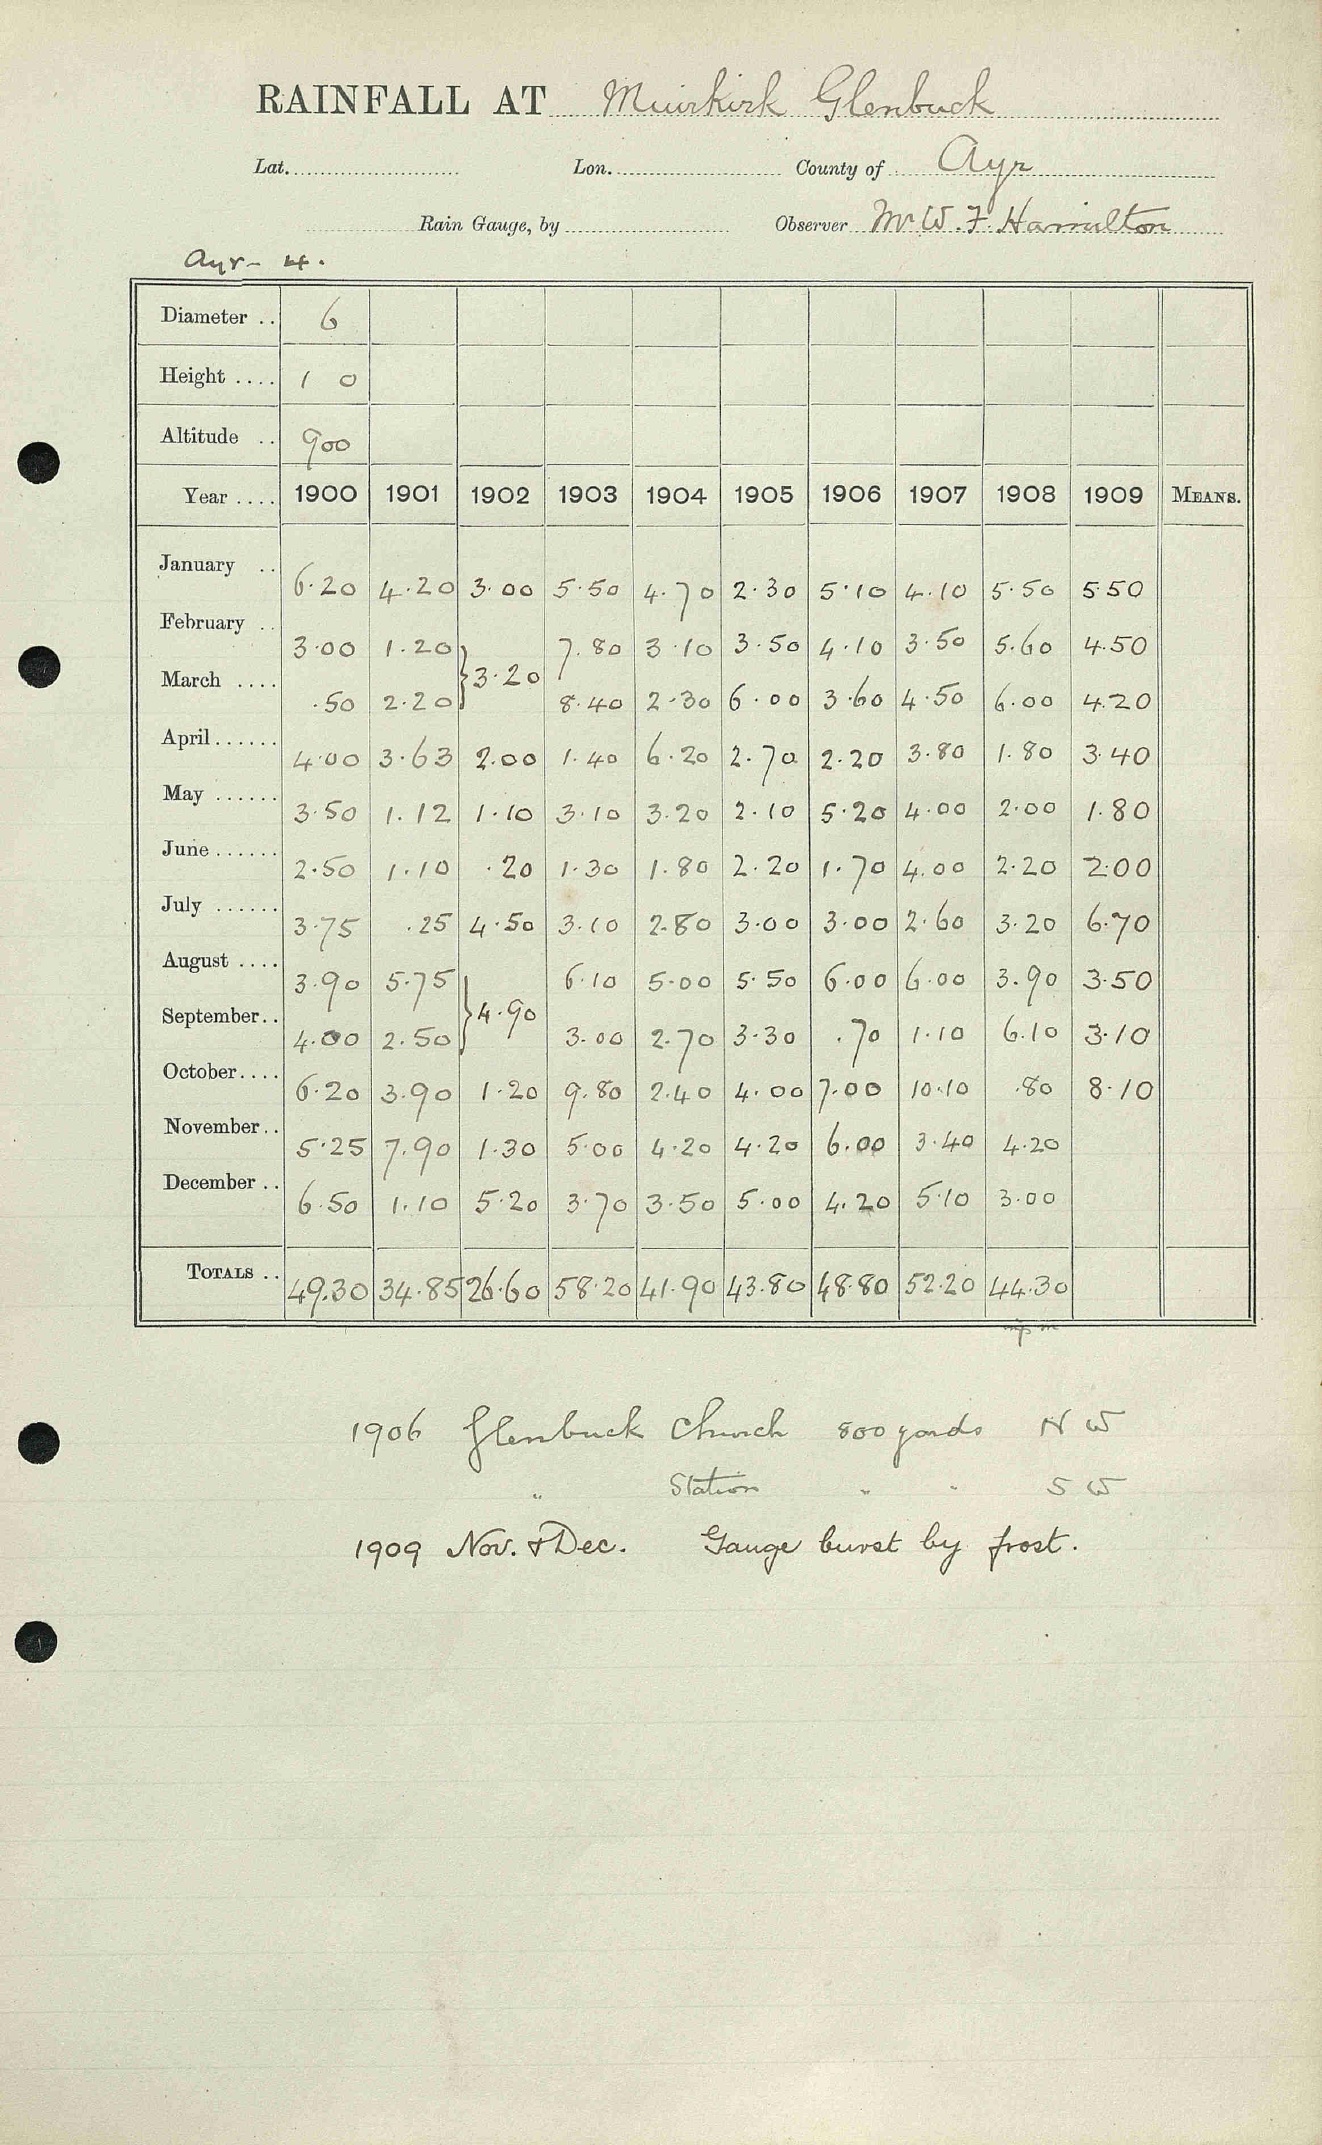 RAINFALL AT Muirkirk Glenbuck
Lat. Lon. County of Ayr
Rain Gauge, by Observer Mr W. F. Hamilton
Ayr - 4.
Diameter .. 6
Height .... 1 0
Altitude .. 900
Year .... 1900 1901 1902 1903 1904 1905 1906 1907 1908 1909 MEANS.
January .. 6.20 4.20 3.00 5.50 4.70 2.30 5.10 4.10 5.50 5.50
February .. 3.00 1.20 } 3.20 7.80 3.10 3.50 4.10 3.50 5.60 4.50
March .... .50 2.20 8.40 2.30 6.00 3.60 4.50 6.00 4.20
April ...... 4.00 3.63 2.00 1.40 6.20 2.70 2.20 3.80 1.80 3.40
May ...... 3.50 1.12 1.10 3.10 3.20 2.10 5.20 4.00 2.00 1.80
June ...... 2.50 1.10 .20 1.30 1.80 2.20 1.70 4.00 2.20 2.00
July ...... 3.75 .25 4.50 3.10 2.80 3.00 3.00 2.60 3.20 6.70
August .... 3.90 5.75 } 4.90 6.10 5.00 5.50 6.00 6.00 3.90 3.50
September .. 4.00 2.50 3.00 2.70 3.30 .70 1.10 6.10 3.10
October .... 6.20 3.90 1.20 9.80 2.40 4.00 7.00 10.10 .80 8.10
November .. 5.25 7.90 1.30 5.00 4.20 4.20 6.00 3.40 4.20
December .. 6.50 1.10 5.20 3.70 3.50 5.00 4.20 5.10 3.00
TOTALS .. 49.30 34.85 26.60 58.20 41.90 43.80 48.80 52.20 44.30
1906 Glenbuck Church 800 yards N W
" Station " " S W
1909 Nov. & Dec. Gauge burst by frost.